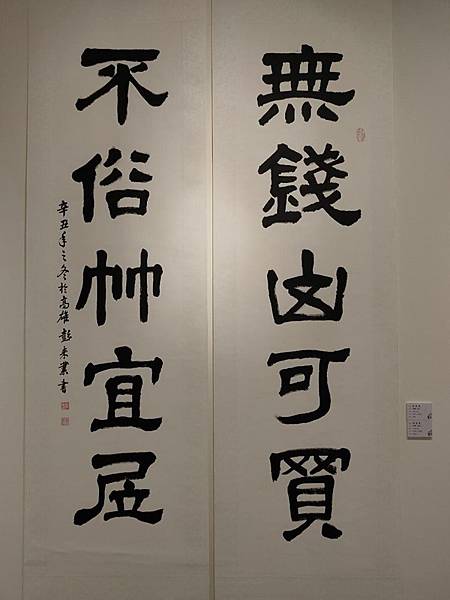 無錢山可買
不俗竹宜居
辛丑年之冬於高雄彭來業書